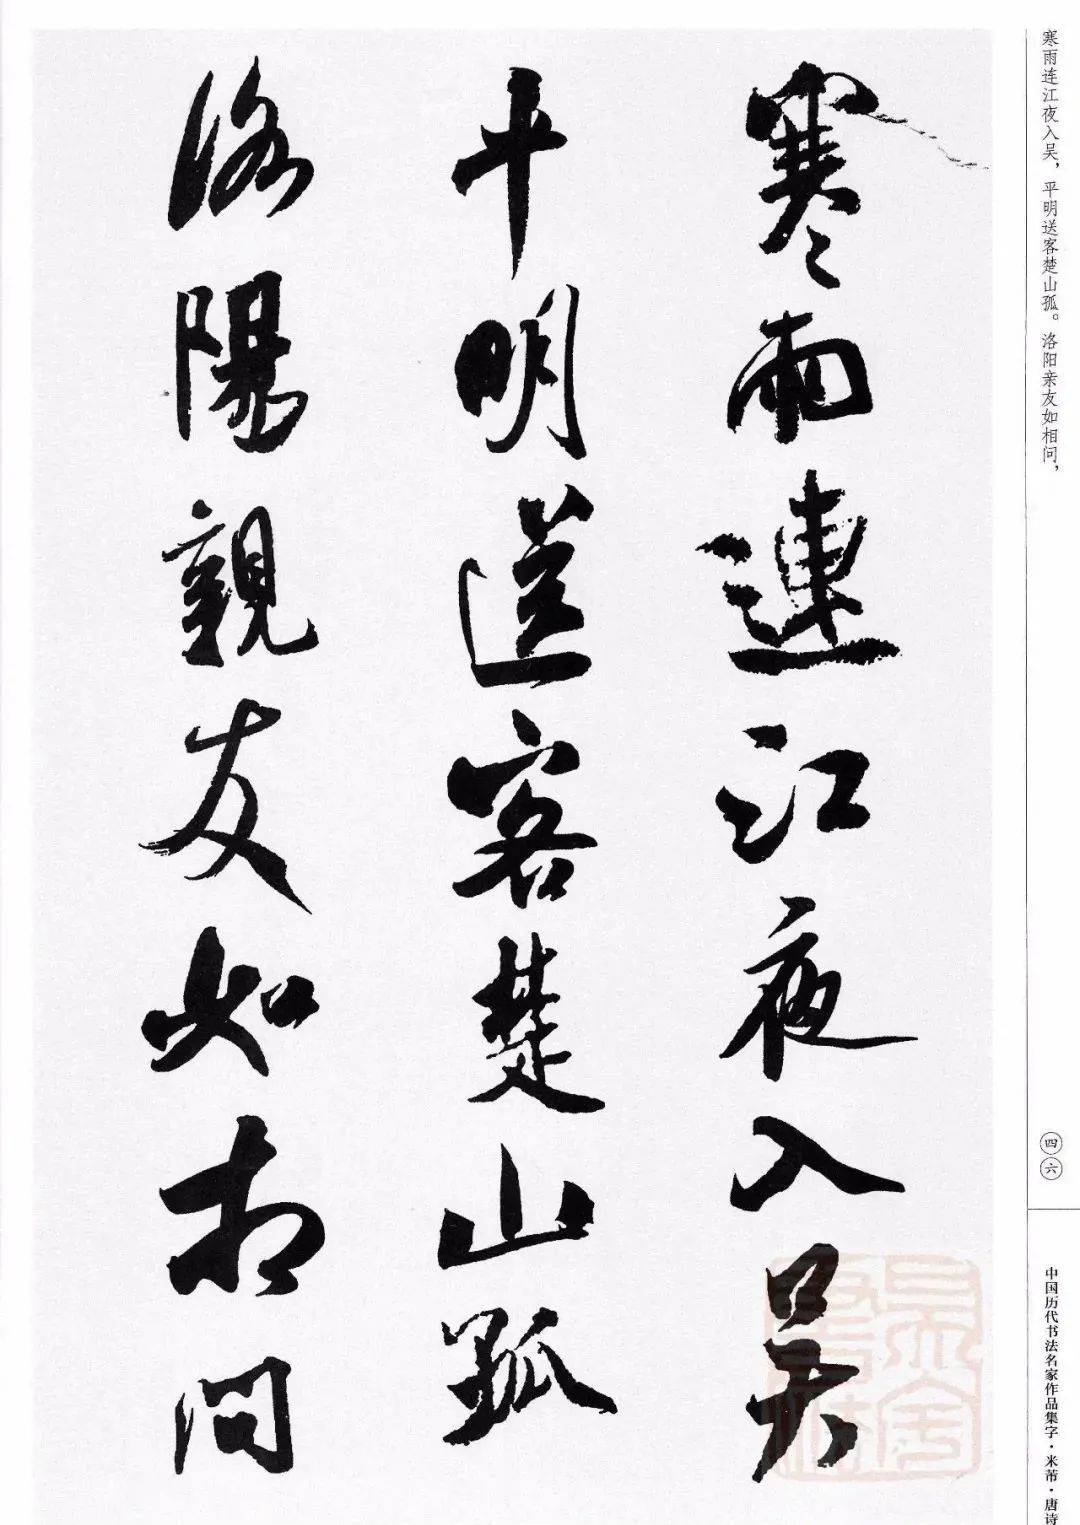 寒雨連江夜入吴
平明送客楚山孤
洛陽親友如相問
寒雨连江夜入吴，平明送客楚山孤。洛阳亲友如相问，
四六
中国历代书法名家作品集字·米芾·唐诗